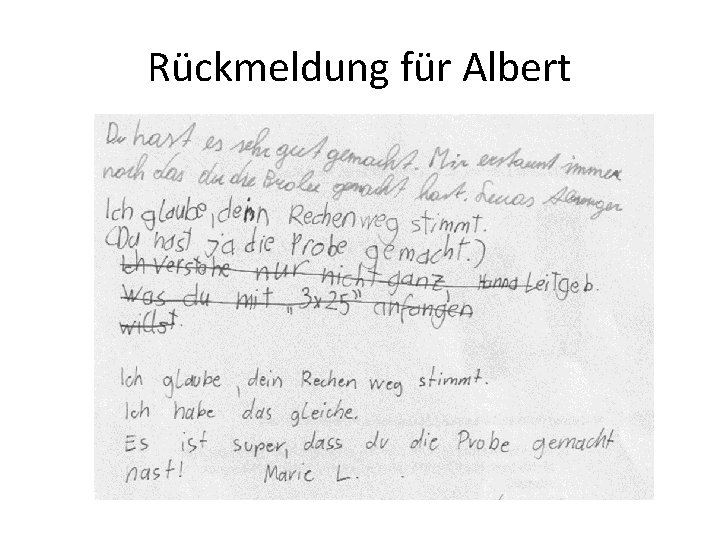 Rückmeldung für Albert
Du hast es sehr gut gemacht. Mir erstaunt immer
noch das du die Probe gemacht hast. Lucas
Ich glaube, dein Rechenweg stimmt.
(Du hast ja die Probe gemacht.)
Ich verstehe nur nicht ganz, Hanna Leitgeb.
Was du mit „3x25" anfangen
willst.
Ich glaube, dein Rechenweg stimmt.
Ich habe das gleiche.
Es ist super, dass du die Probe gemacht
hast! Marie L.